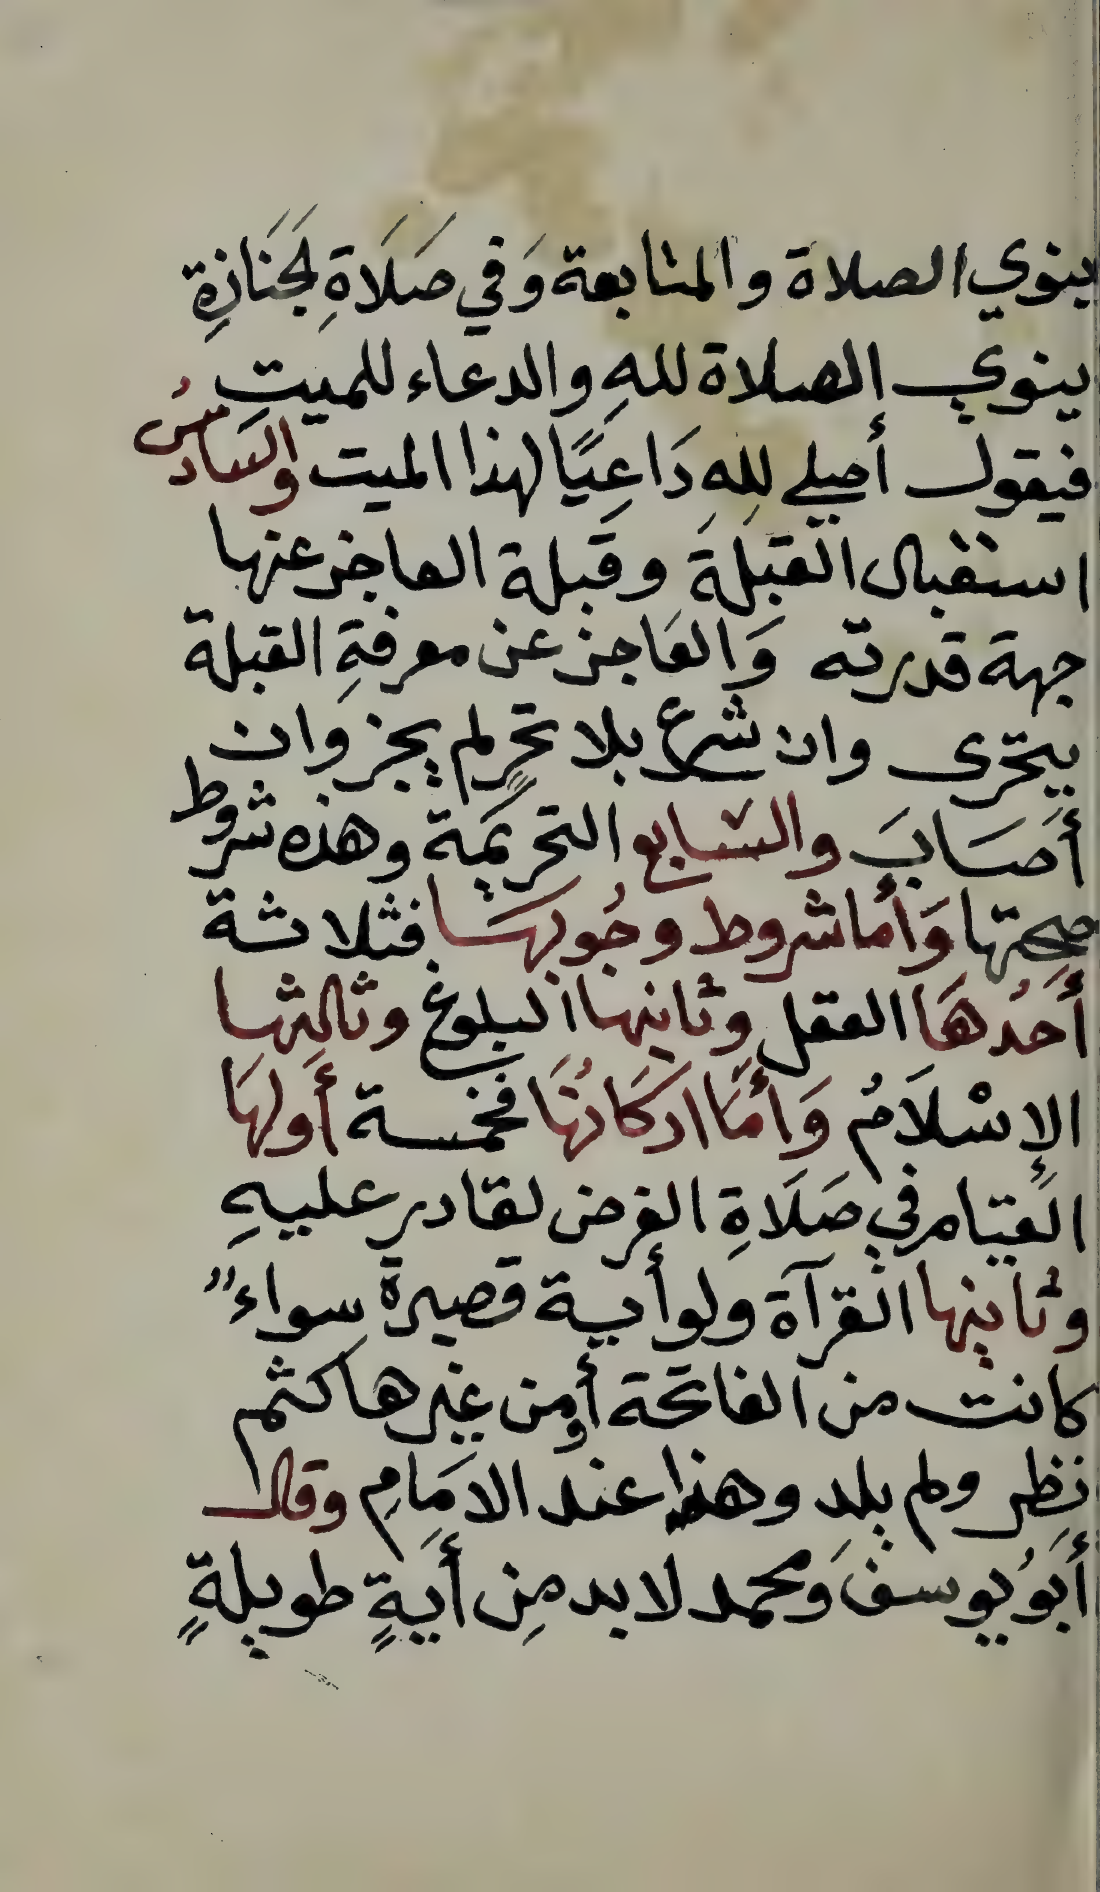 ينوي الصلاة والمتابعة وَفي صَلَاةِ لجَنَازِةِ
ينوي الصلاة للهِ والدعاء للميتِ
فيقول أصلي لِلهِ دَاعِيًا لهذا الميت والسادسُ
استقبال القبلَةِ وقبلة العاجز عنها
جهة قدرته وَالعَاجز عن معرفةِ القبلة
يتحرى وان شرع بلا تحرٍ لم يجز وان
أَصَابَ والسابع التحريمَة وهذه شروط
صحتها وَأما شروط وجُوبهَا فثلاثة
أَحَدُهَا العقل وثانيها البلوغ وثالثها
الإسْلَامُ وَأمَّا اركَانُهَا فخمسة أَولهَا
القِيَام في صَلَاةِ الفرض لقادر عليهِ
وثانيها القرآة ولو أية قصيرة سواءً
كانت من الفاتحة أو من غيرها كثم
نظر ولم يلد وهذا عند الامَامِ وقال
أَبوُ يوسفَ وَمحمد لا بد مِن أَيةٍ طويلةٍ